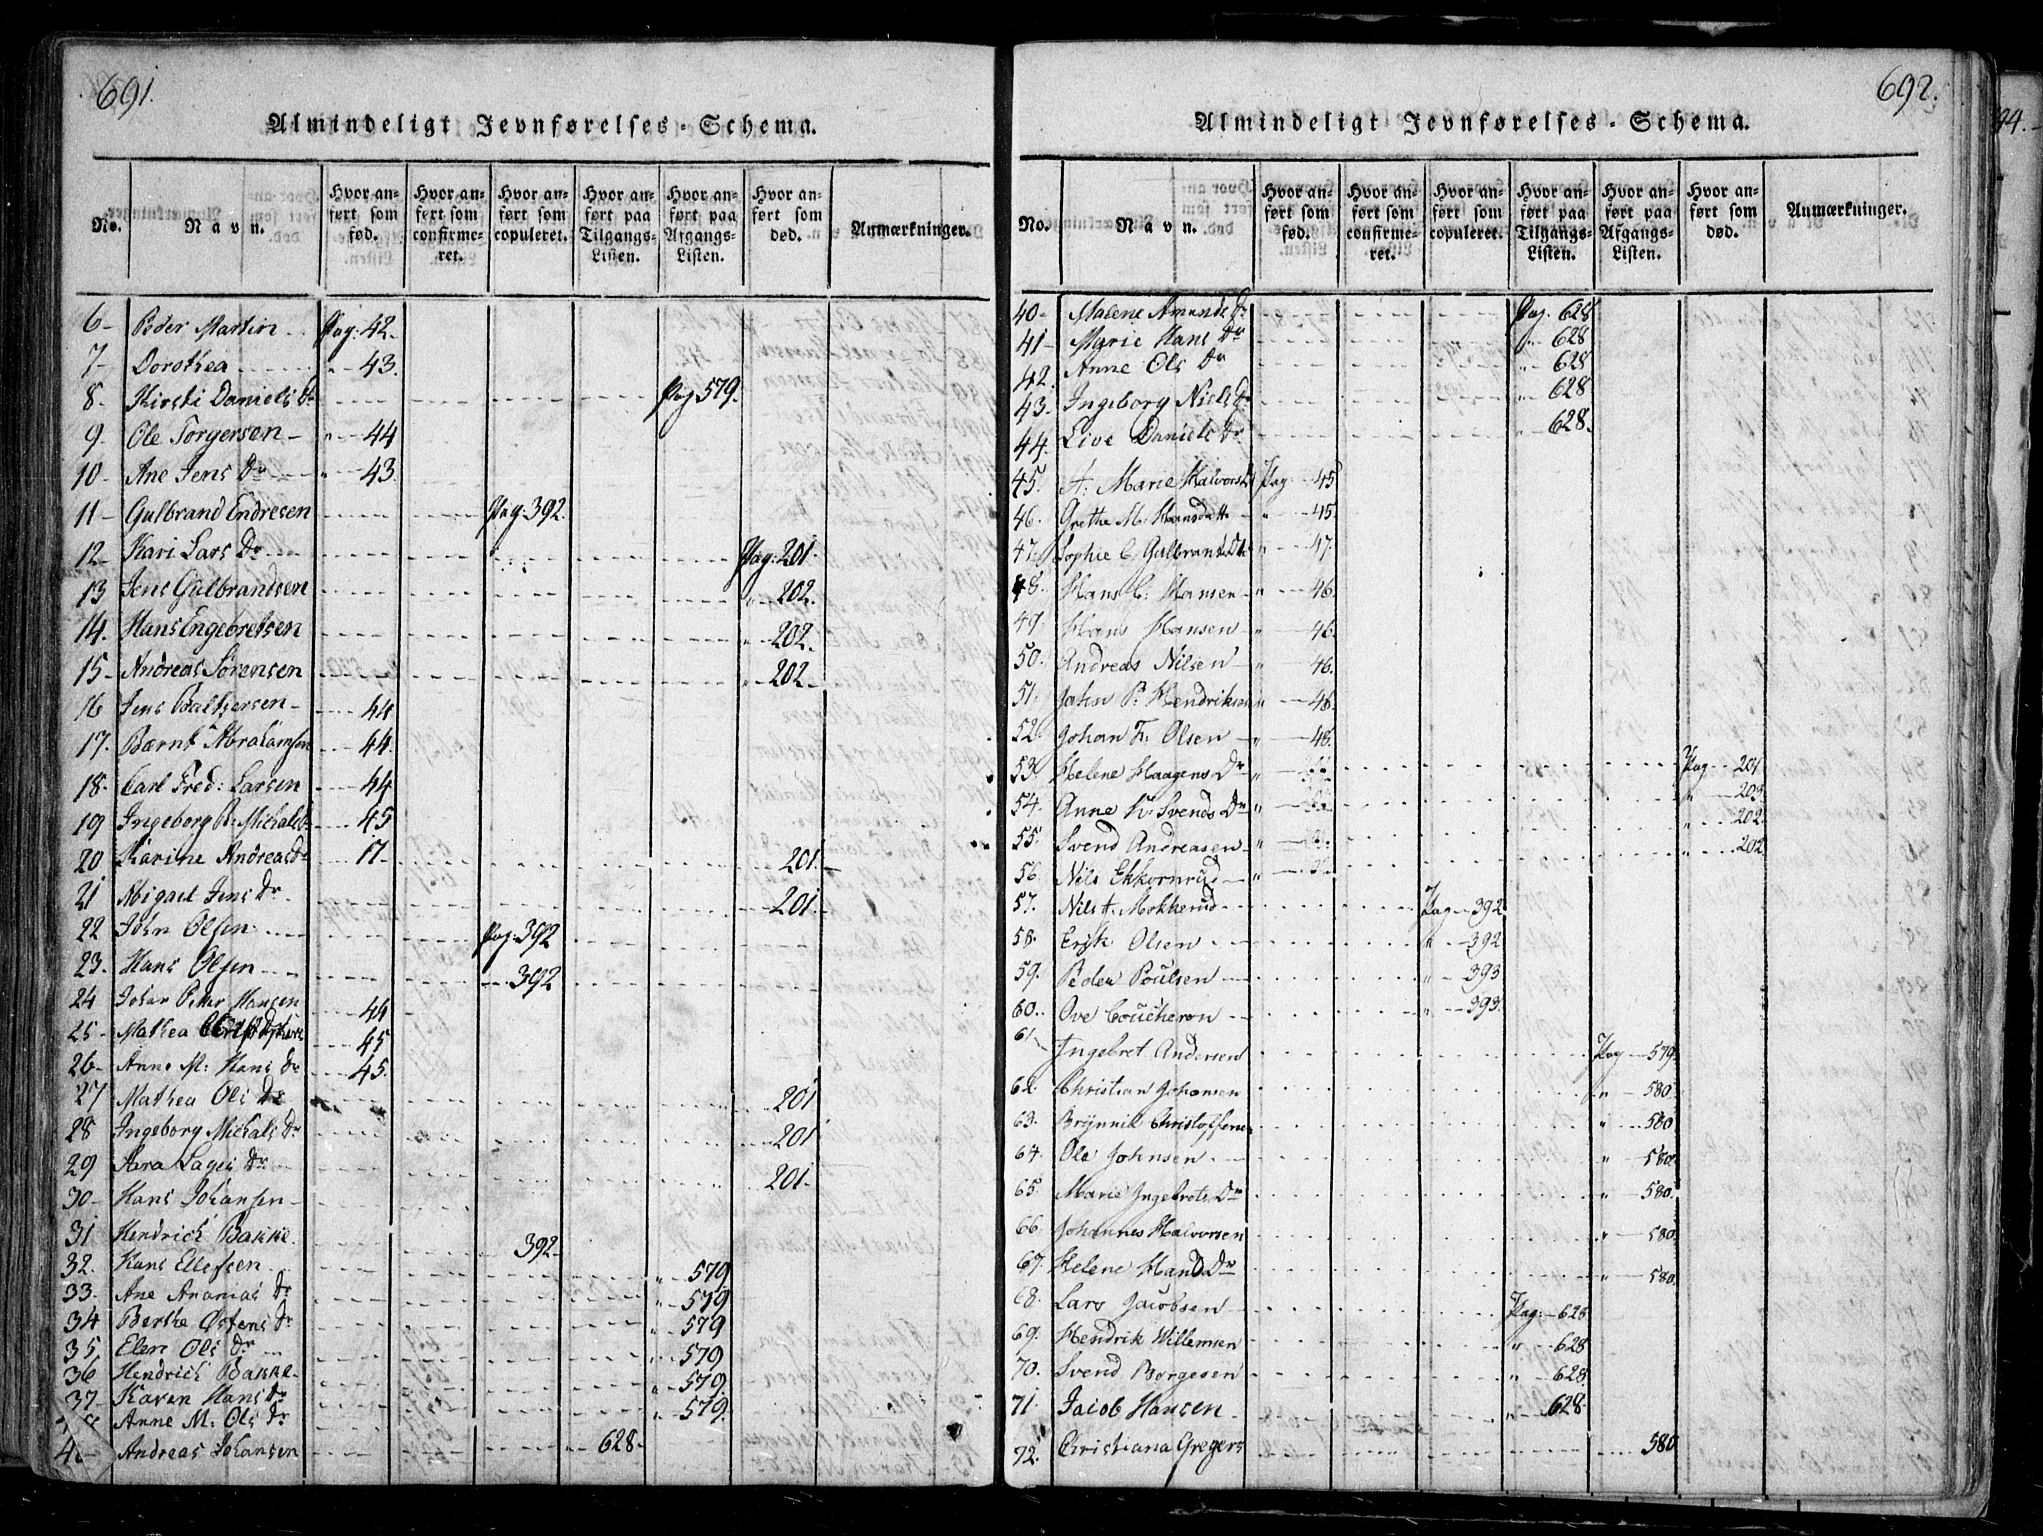 691.
Almindeligt Jevnførelses-Schema.
No. Navn. Hvor anført som fød. Hvor anført som confirmeret. Hvor anført som copuleret. Hvor anført paa Tilgangs-Listen. Hvor anført paa Afgangs-Listen. Hvor anført som død. Anmærkninger.
6- Peder Martin Pag: 42.
7- Dorothea " 43.
8- Kirsti Daniels Dr Pag 579.
9- Ole Torgersen " 44
10- Ane Jens Dr " 43.
11- Gulbrand Endresen Pag: 392.
12- Kari Lars Dr Pag: 201.
13 Jens Gulbrandsen " 202.
14. Hans Engebretsen " 202.
15- Andreas Sørensen " 202.
16 Jens Baltsersen 44
17. Bærnt Abrahamsen 44.
18. Carl Fred: Larsen 44
19 Ingeborg R. Michals Dr 45
20 Karine Andreas Dr 17. 201.
21 Abigael Jens Dr 201.
22 John Olsen Pag: 392
23. Hans Olsen 392
24 Johan Peter Hansen 44
25- Mathea 45
26- Anne M: Hans Dr 45.
27 Mathea Ols Dr 201
28 Ingeborg Michals Dr 201
29 Sara Lages Dr 201.
30- Hans Johansen
31 Hendrich Bakke 392
32. Hans Ellefsen " 579
33. Ane Ananias Dr " 579
34 Berthe Østens Dr " 579
35. Elen Ols Dr 579
36 Hendrich Bakke " 579.
37- Karen Hans Dr " 579.
Anne M: Ols Dr
4 Andreas Johansen 628.
692.
Almindeligt Jevnførelses-Schema.
No. Navn. Hvor anført som fød. Hvor anført som confirmeret. Hvor anført som copuleret. Hvor anført paa Tilgangs-Listen. Hvor anført paa Afgangs-Listen. Hvor anført som død. Anmærkninger.
40- Malene Amunds Dr Pag. 628
41- Marie Hans Dr " 628
42. Anne Ols Dr " 628
43. Ingeborg Niels Dr " 628
44. Live Daniels Dr " 628.
45. A: Marie Halvors D Pag 45
46. Grethe M: Hansdatt " 45.
47. Sophie C Gulbrants Dtr " 47.
48. Hans C. Hansen " 46.
49 Hans Hansen " 46.
50. Andreas Nilsen " 46.
51. John P. Hendriksen " 46.
52. Johan F. Olsen " 48.
53. Helene Haagens Dr " Pag 201
54. Anne K: Svends Dr " " 203
55. Svend Andreasen " " 202.
56. Nils Ekkornrud " " 202
57. Nils A. Mokkerud Pag 392
58. Erik Olsen " 392
59. Peder Poulsen " 393
60. Ove Coucheron " 393.
61 Ingebret Andersen Pag 579.
62. Christian Johansen " 580.
63. Brynnil Christoffersen " 580
64. Ole Johnsen " 580.
65. Marie Ingebrets Dr " 580.
66. Johannes Halvorsen " 580.
67. Helene Hans Dr " 580.
68. Lars Jacobsen Pag: 628
69. Hendrik Willemsen " 628
70. Svend Børgesen " 628.
71. Jacob Hansen " 628.
72. Christiana Gregers 580
94.